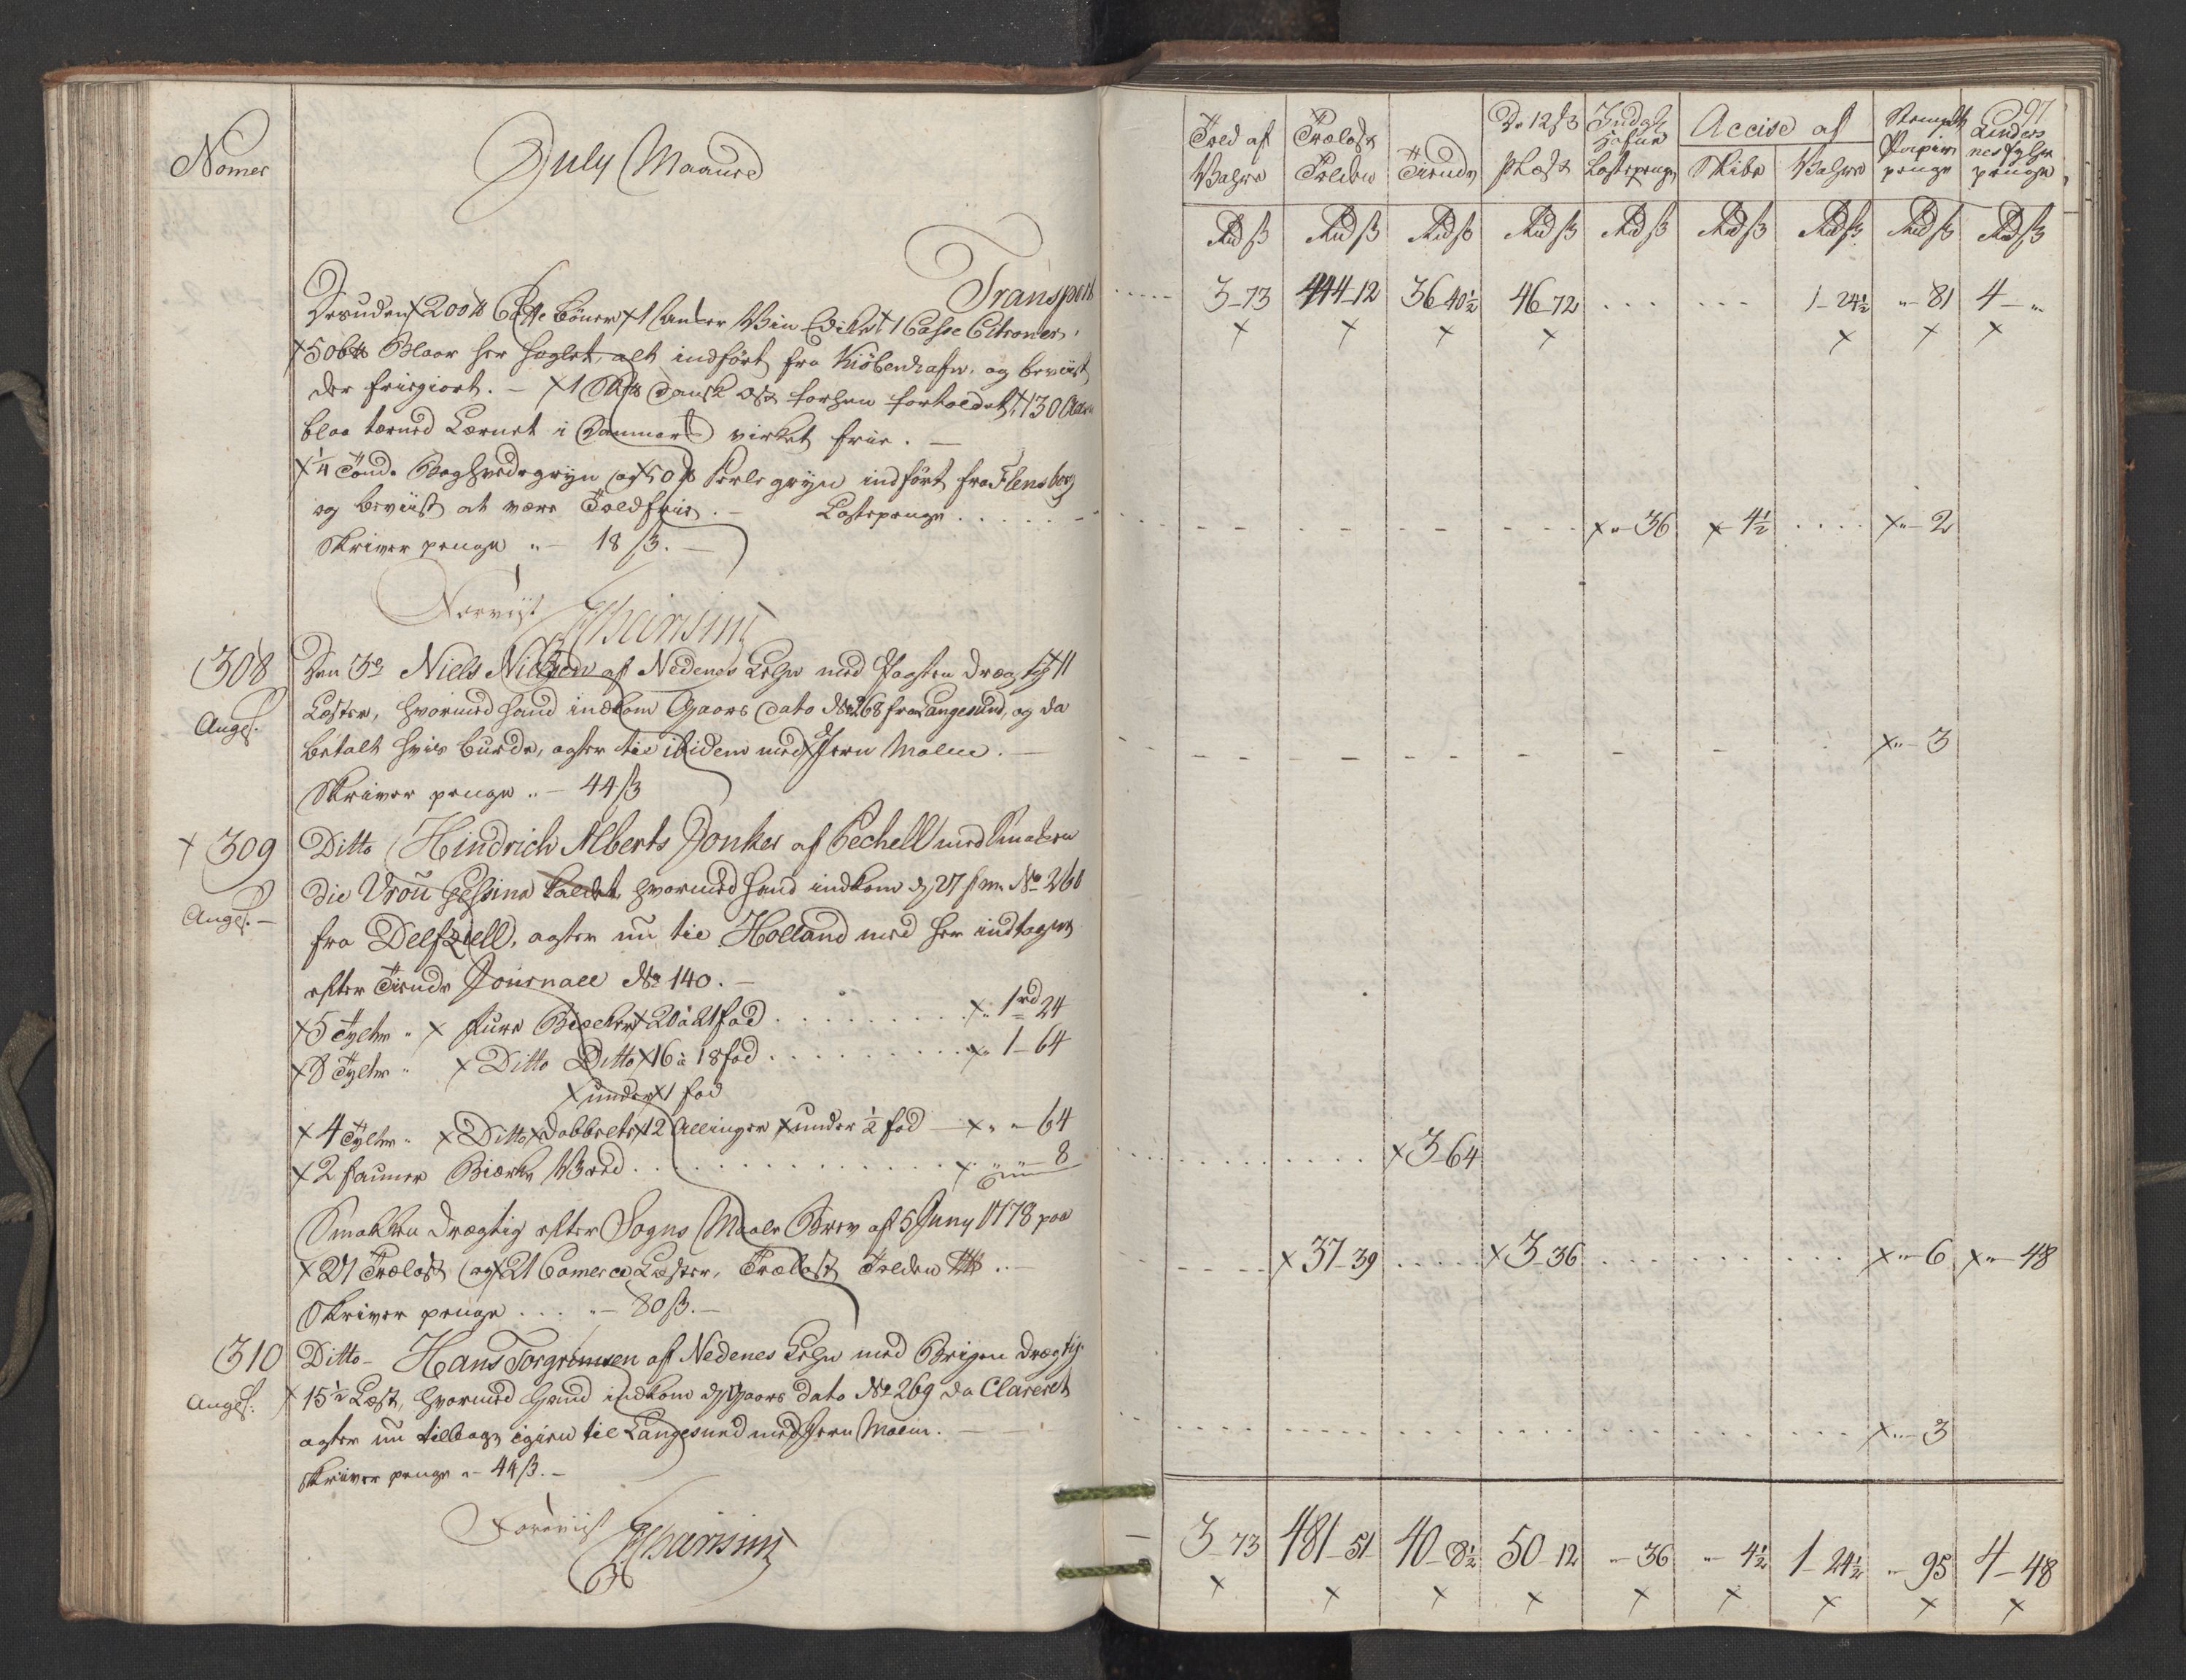 Nomer
July Maaned
Transport
Desuden 200 ℔ Caffe bönner 1 Ancker Viin Edike 1 Casse Citroner,
50 ℔ Blaar her heglet, alt indfört fra Kiöbenhafn, og beviist
der friegiort. – 1 Dansk Ost forhen fortoldet, 130 Allen
blaa tærned Lærret i Danmark virket frie. –
¼ Tönde Boghvedegryn og 50 ℔ Perle gryn indfört fra Flensborg
og beviist at være Toldfrie. – Lastepenge . . . . .
Skriver penge " – 18 ß. –
Norviist
308
Den 3de Niels Nielsen af Nedenes Lehn med Jagten drægtig 11
Anges.
Læster, hvormed hand indkom Gaars dato No 268 fra Langesund, og da
betalt hvis burde, agter til ibidem med Jern Malm. –
Skriver penge " – 44 ß
309
Ditto Hindrich Alberts Jonker af Pechell med Smakken
die Vroŭ Gessina kaldet, hvormed hand indkom d 27 No 260
Anges. –
fra Delfziell, agter nŭ til Holland med her indtagen
efter Tiende Journall No 140. –
5 Tylter " Fure Bielcker 20 à 21 fod . . . . . . " 1 rd 24
8 Tylter " Ditto Ditto 16 à 18 fod . . . . . . " 1 – 64
under 1 fod
4 Tylter " Ditto dobbelte 12 Allinger under ½ fod – " – 64
2 faŭner Biærke Wed . . . . . . " – 8
Smakken drægtig efter Sogns Maale Brev af 5 Juny 1778 paa
27 Trælast og 21 Comerce Læster, Trælast Tolden . –
Skriver penge . . . " – 80 ß. –
310
Ditto – Hans Torgrimsen af Nedenes Lehn med Brigen drægtig
Anges.
15½ Læst, hvormed hand indkom d Gaars dato No 269 da Clareret
agter nŭ tilbage igien til Langesund med Jern Malm. –
Skriver penge " – 44 ß. –
97
Told af Vahre
Trælast Tolden
Tiende
Do 12 ß pr Læst
Indg: Hafne Lastepenge
Accise af
Skibe
Vahre
Stemplt Papiirs penge
Linders nes fyhr penge
Rd ß Rd ß Rd ß Rd ß Rd ß Rd ß Rd ß Rd ß Rd ß
3–73 444–12 36–40½ 46–72 . . . . . . 1–24½ "–81 4–"
"–36 4½ . . . . "–2
"–3
3–64
37–39 . . . . 3–36 . . . . "–6 "–48
"–3
3–73 481–51 40–8½ 50–12 "–36 "–4½ 1–24½ "–95 4–48